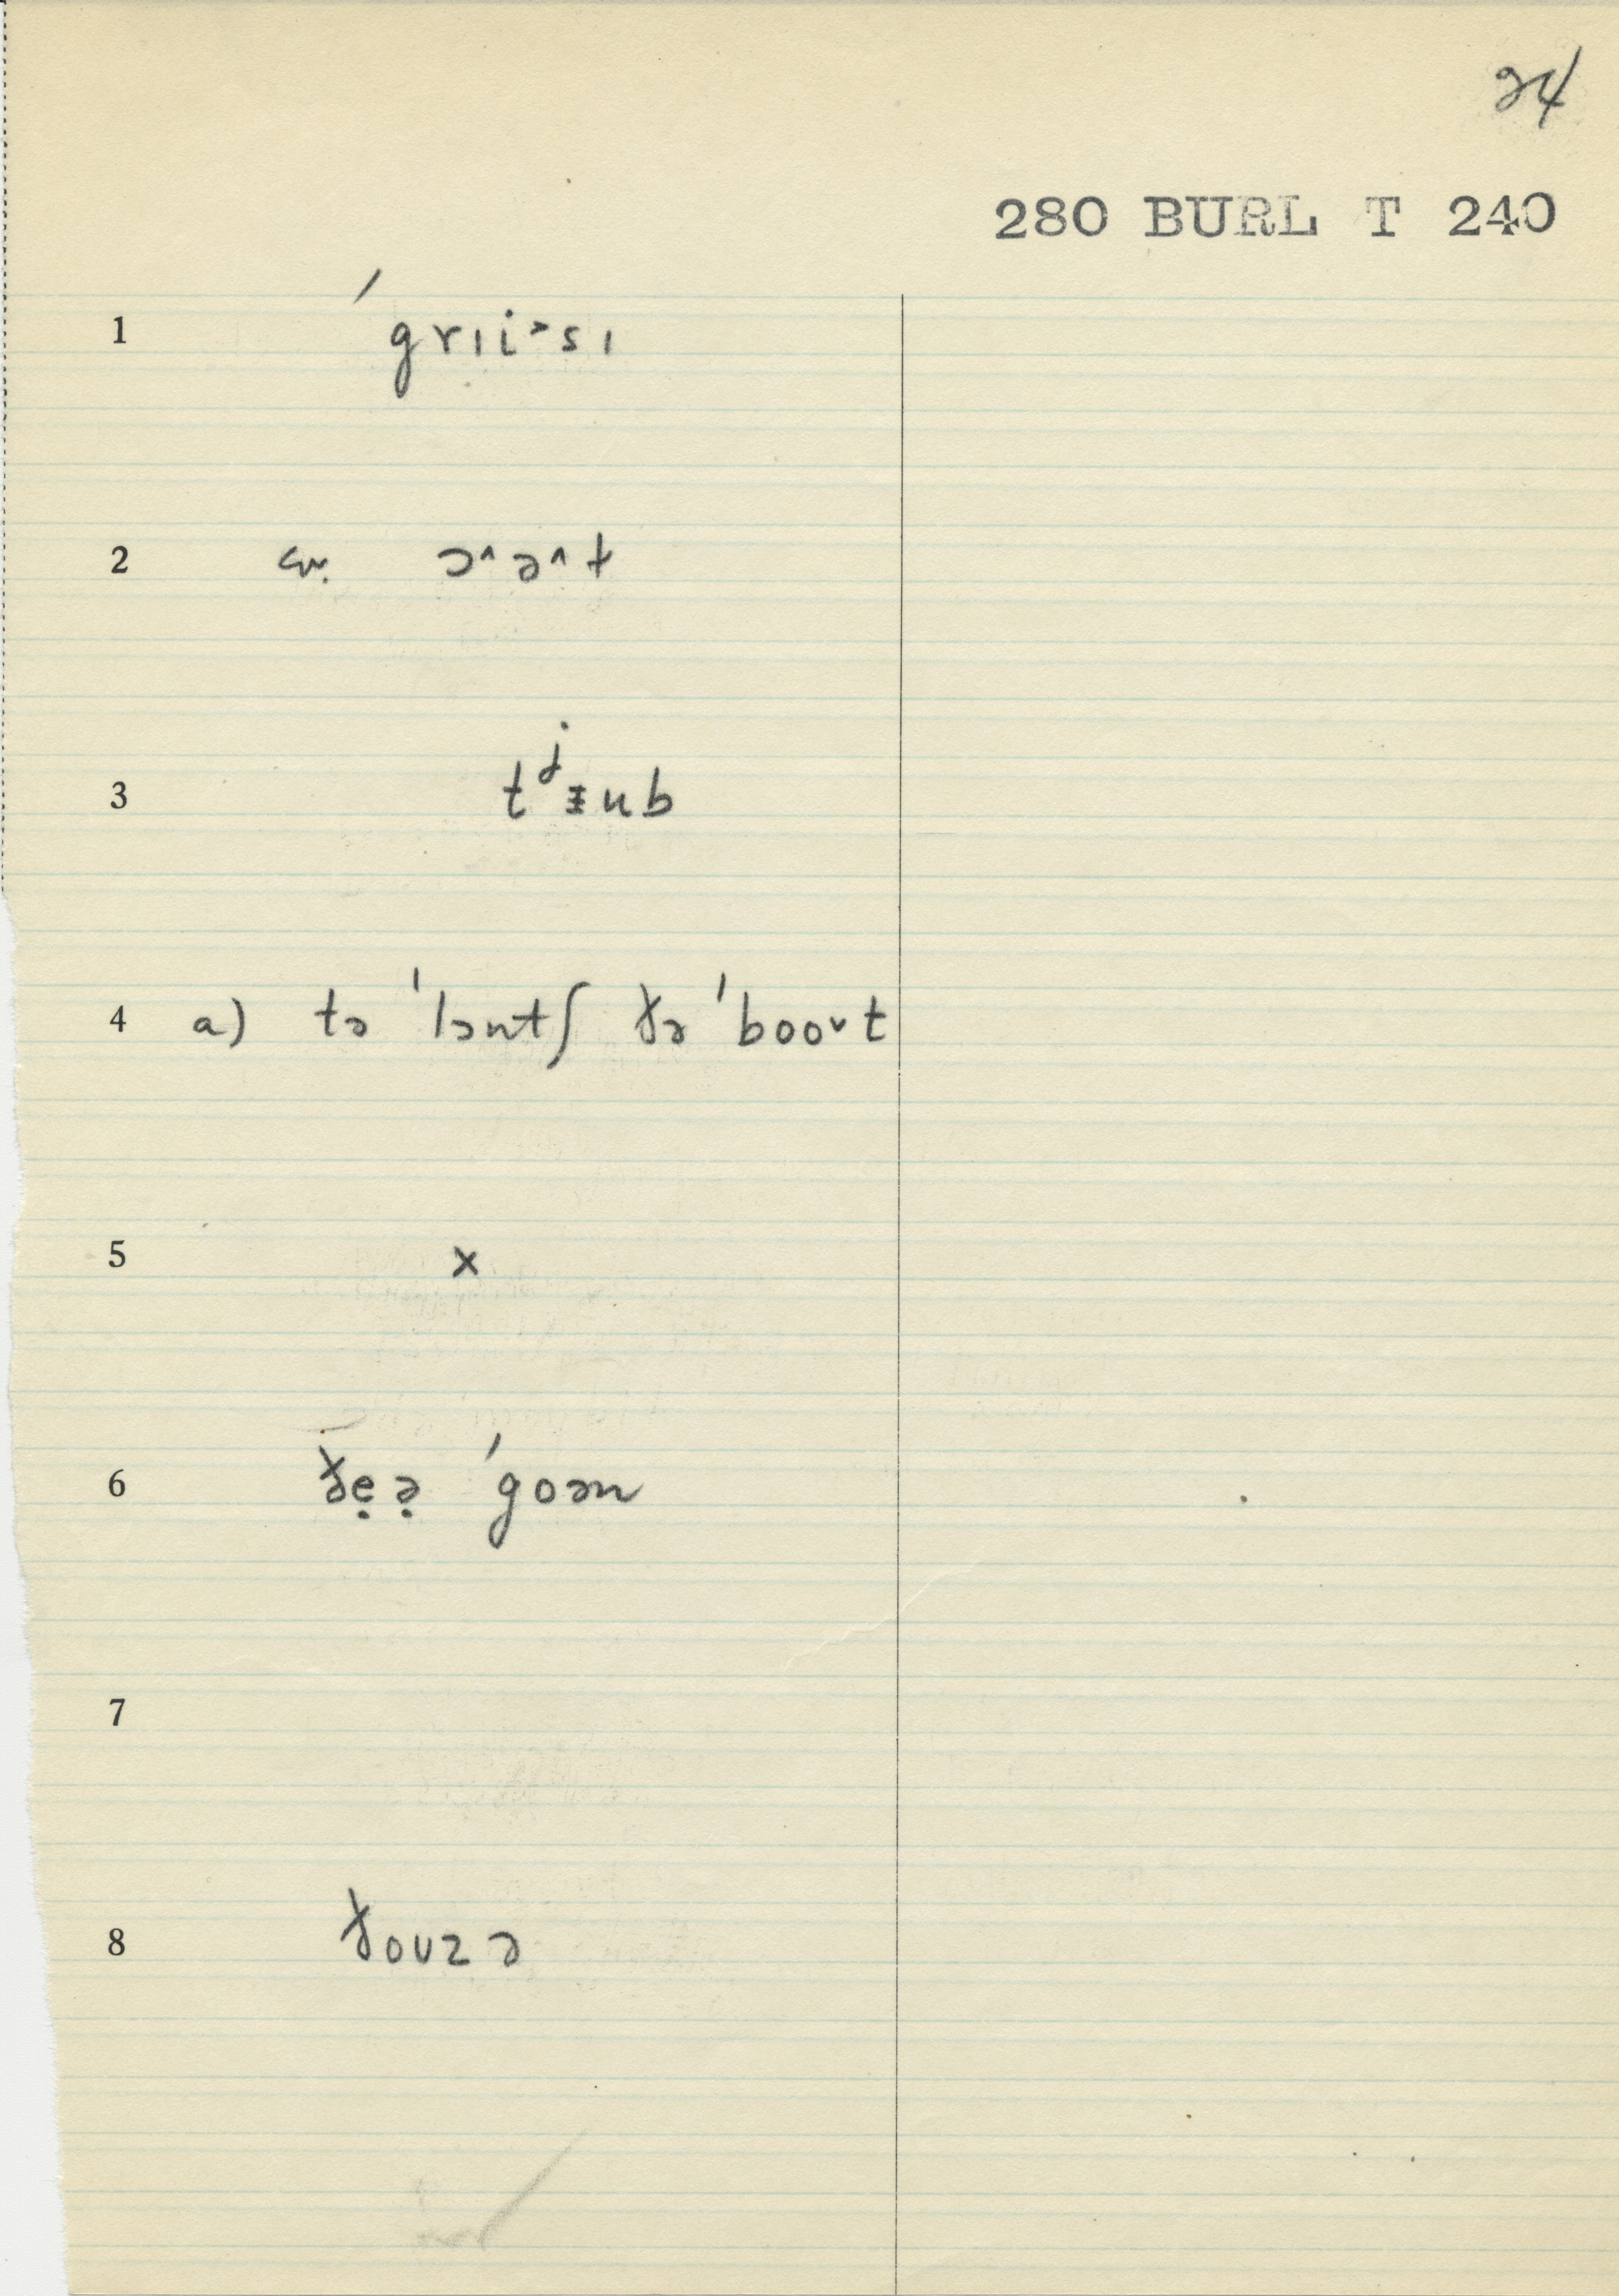 24
280 BURL T 240
1 ˈgrɪi˃sɪ
2 cw. ɔ˄ə˄t
3 tʲᵻub
4 a) tə ˈlɔntʃ ðə ˈboo˅t
5 x
6 ðẹə̣ ˈgoən
7
8 ðouzə